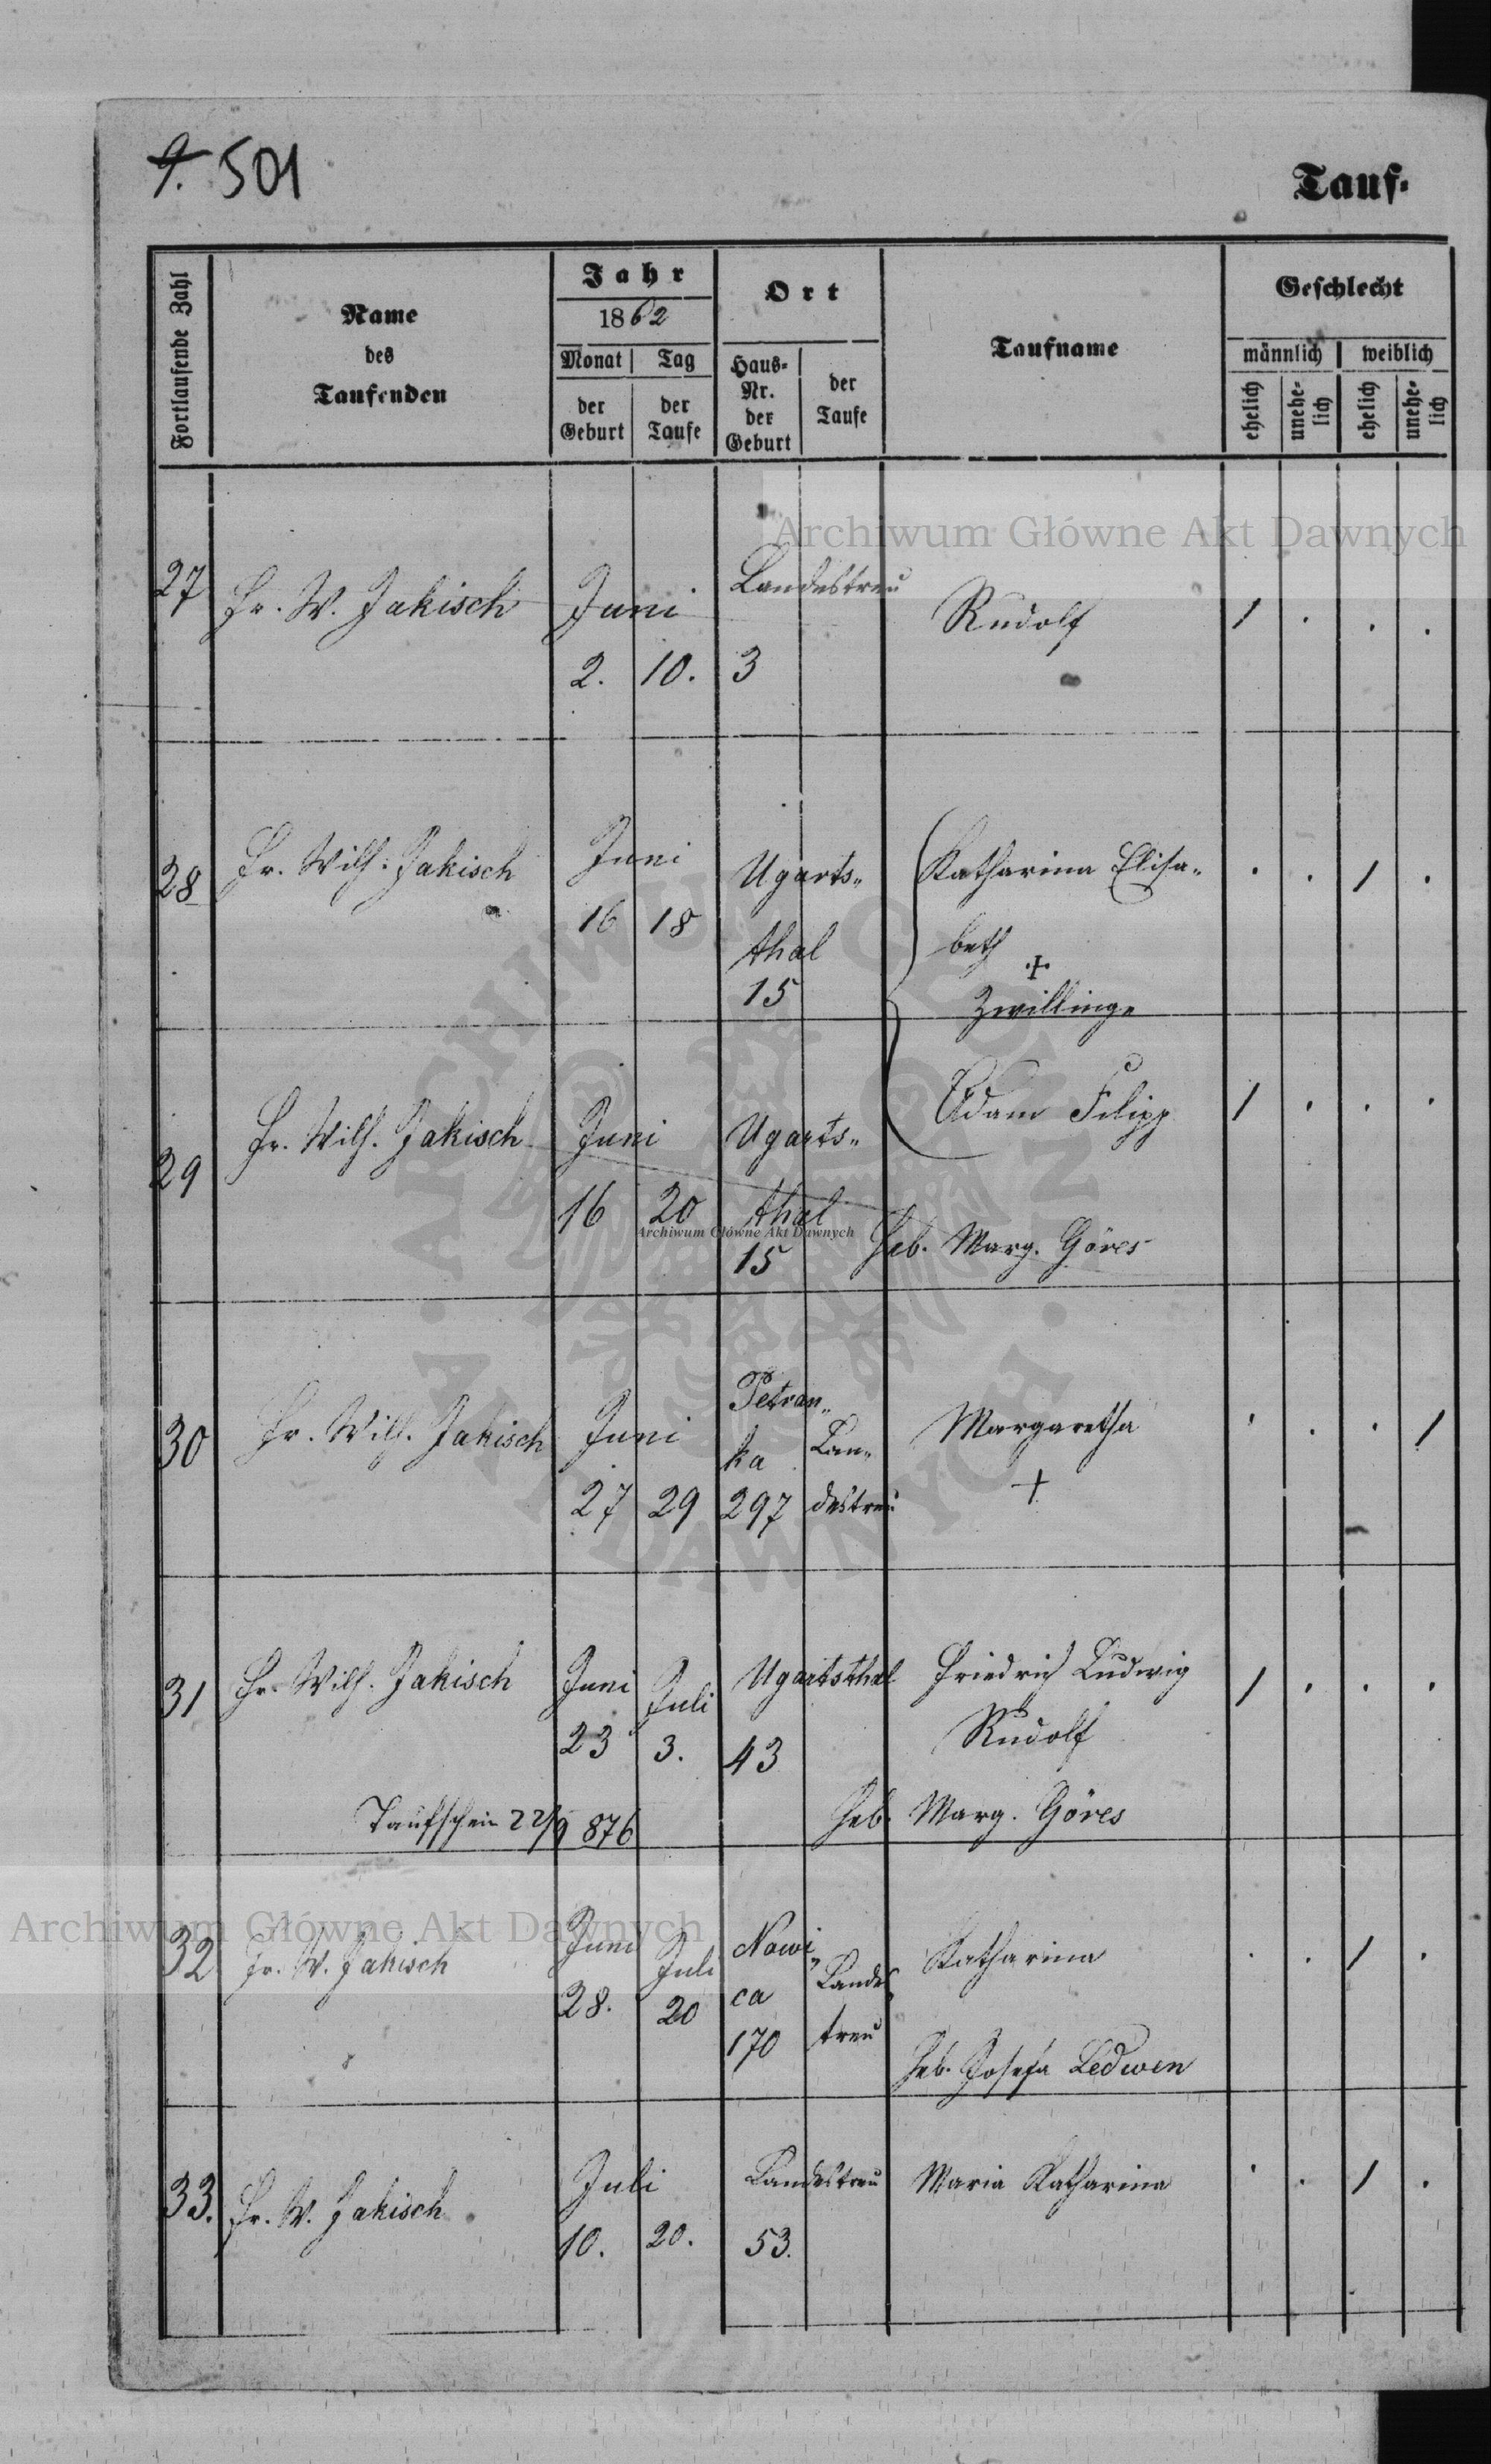 9. 501
Tauf-
Fortlaufende Zahl
Name
des
Taufenden
Jahr
1862
Monat
Tag
der
Geburt
der
Taufe
Ort
Haus-
Nr.
der
Geburt
der
Taufe
Taufname
Geschlecht
männlich
weiblich
ehelich
unehe-
lich
ehelich
unehe-
lich
Archiwum Główne Akt Dawnych
27 Fr. W. Jakisch Juni Landestreu Rudolf / . . .
2. 10. 3
28 Fr. Wilh. Jakisch Juni Ugarts„ Katharina Elisa„ . . / .
16 18 thal beth
15 +
Zwillinge
29 Fr. Wilh. Jakisch Juni Ugarts„ Adam Filipp / . . .
16 20 thal
Archiwum Główne Akt Dawnych
15 Heb. Marg. Göres
30 Fr. Wilh. Jakisch Juni Petran„ Margaretha . . . /
ka Lan„
27 29 297 destreu +
31 Fr. Wilh. Jakisch Juni Juli Ugartsthal Friedrich Ludwig / . . .
23 3. 43 Rudolf
Taufschein 22/9 876 Heb. Marg. Göres
Archiwum Główne Akt Dawnych
32 Fr. W. Jakisch Juni Juli Nowi„ Landes Katharina . . / .
28. 20 ca treu
170
Heb. Josefa Ledwen
33. Fr. W. Jakisch Juli Landestreu Maria Katharina . . / .
10. 20. 53.
ARCHIWUM GŁÓWNE AKT DAWNYCH